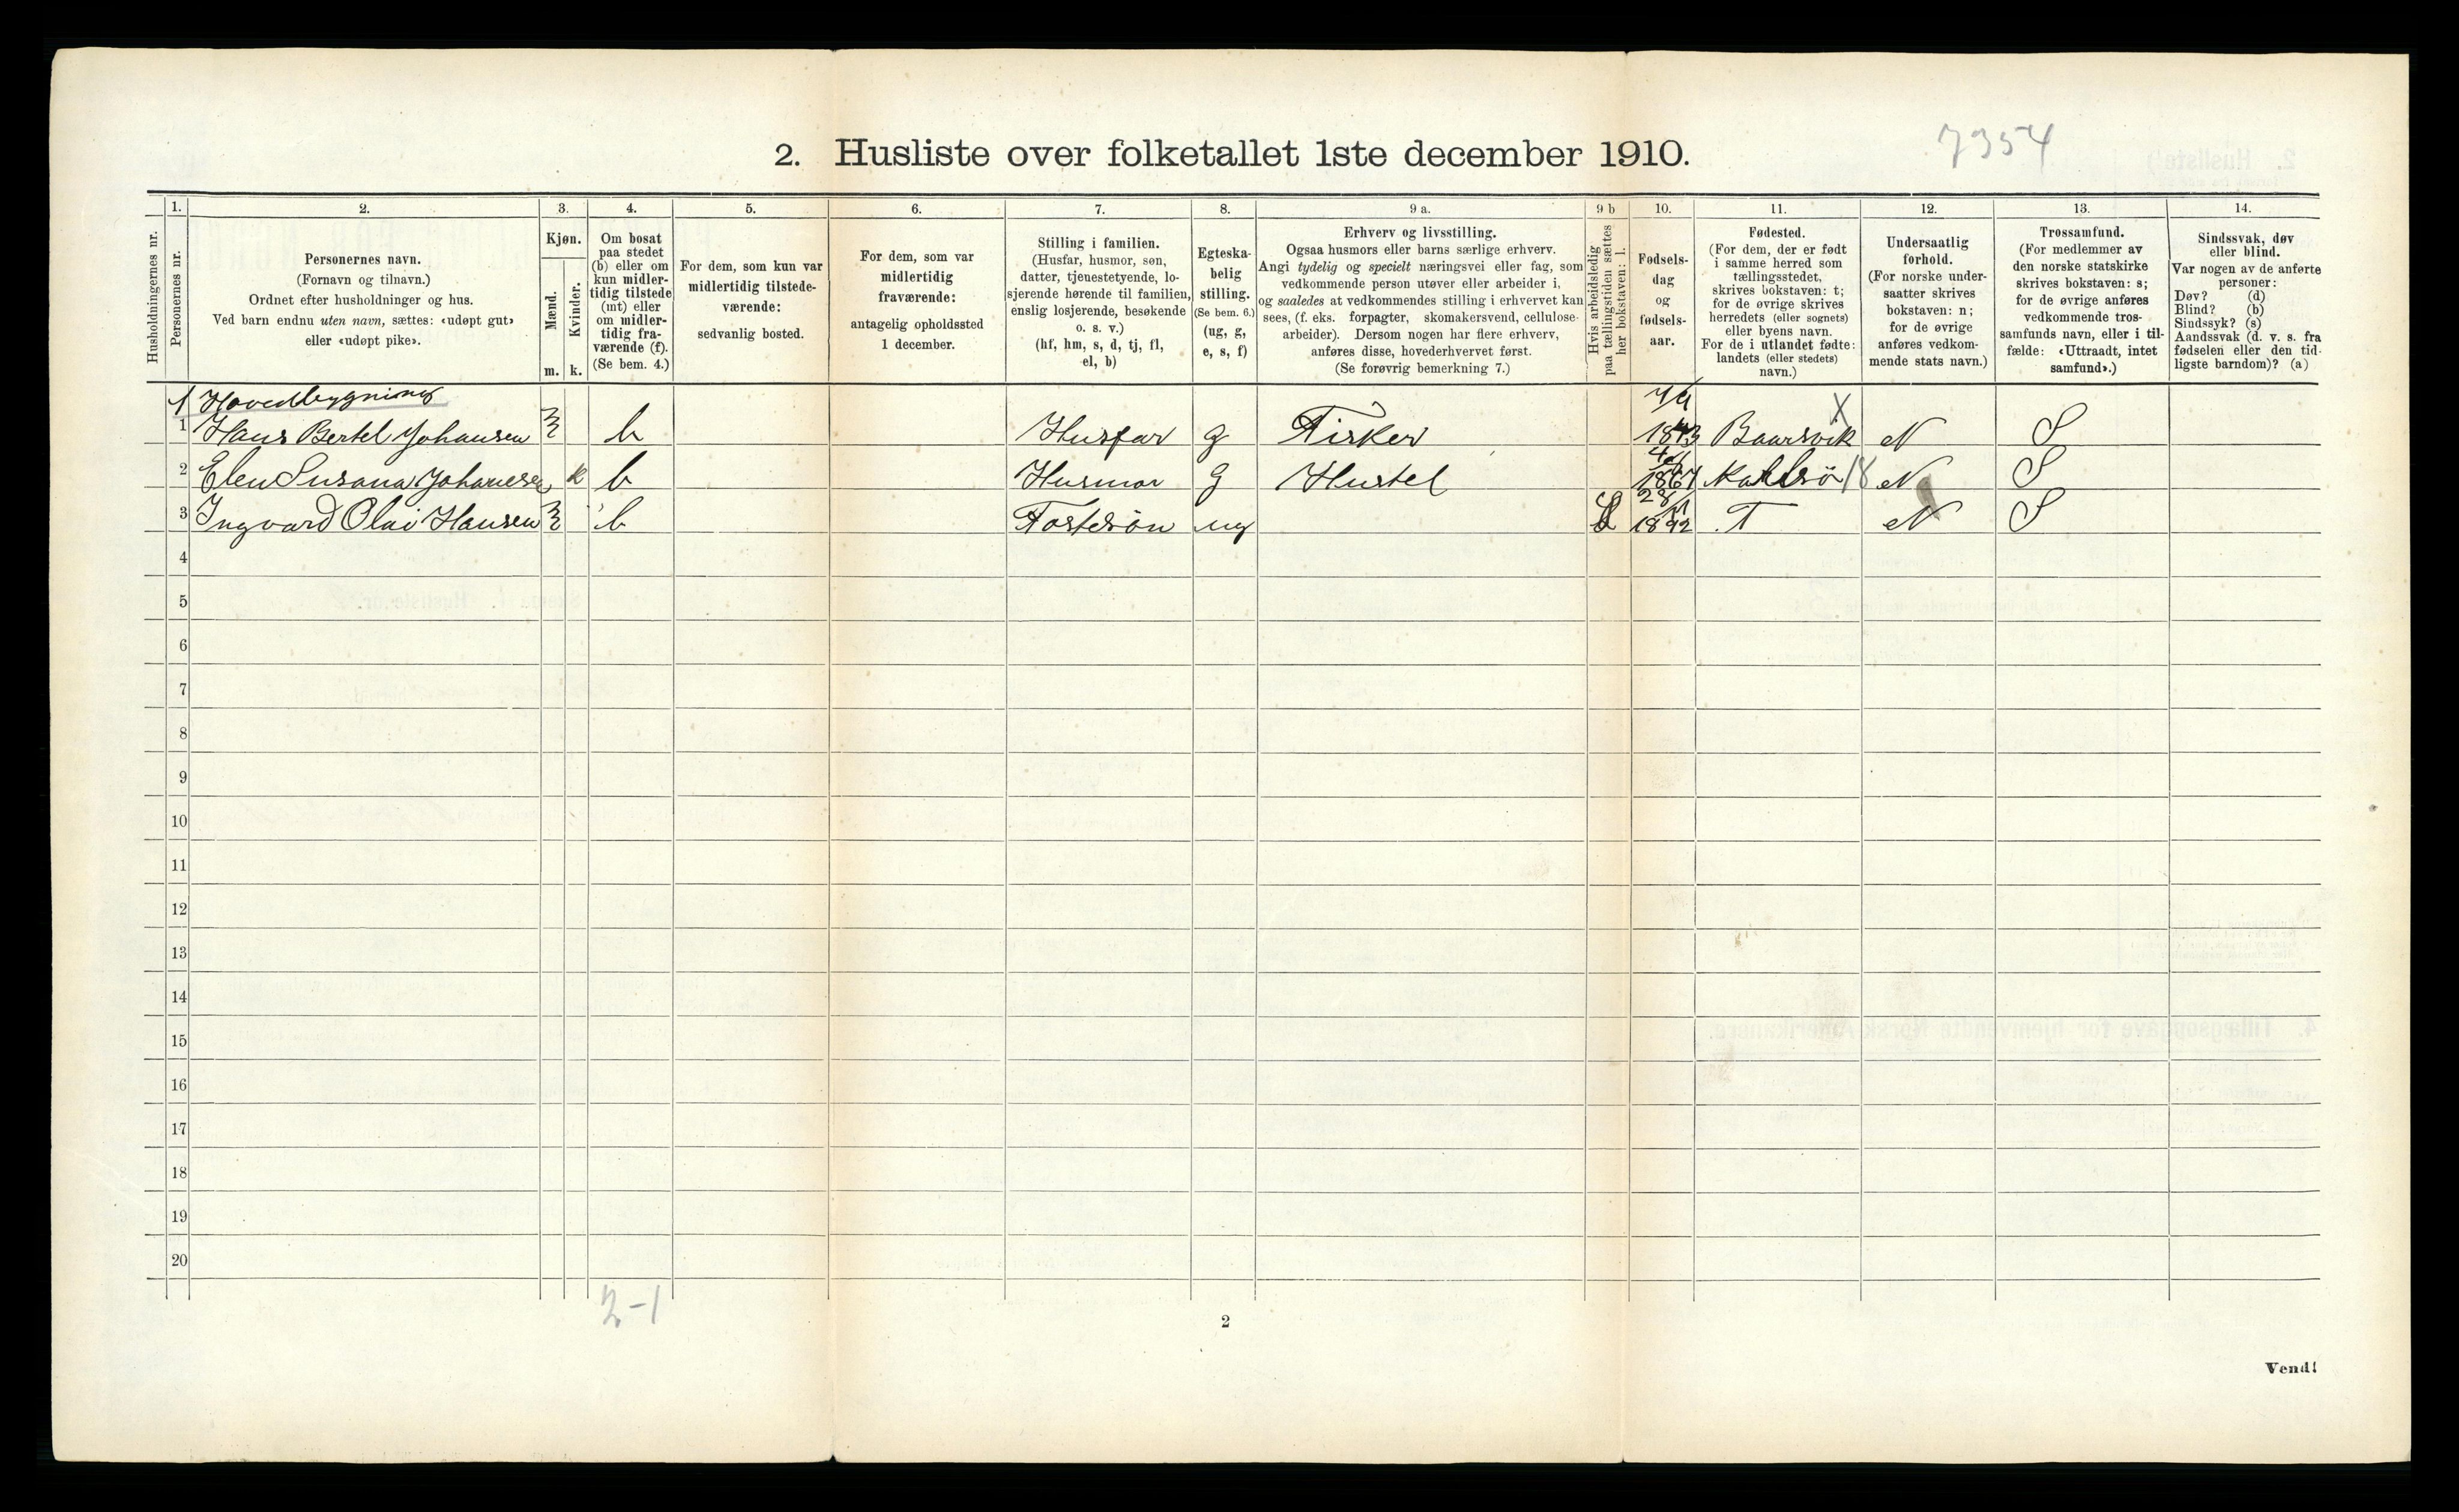 7354
2. Husliste over folketallet 1ste december 1910.
Husholdningernes nr.
1.
Personernes nr.
2.
Personernes navn.
(Fornavn og tilnavn.)
Ordnet efter husholdninger og hus.
Ved barn endnu uten navn, sættes: «udøpt gut»
eller «udøpt pike».
3.
Kjøn.
Mænd.
m.
Kvinder.
k.
4.
Om bosat
paa stedet
(b) eller om
kun midler-
tidig tilstede
(mt) eller
om midler-
tidig fra-
værende (f).
(Se bem. 4.)
5.
For dem, som kun var
midlertidig tilstede-
værende:
sedvanlig bosted.
6.
For dem, som var
midlertidig
fraværende:
antagelig opholdssted
1 december.
7.
Stilling i familien.
(Husfar, husmor, søn,
datter, tjenestetyende, lo-
sjerende hørende til familien,
enslig losjerende, besøkende
o. s. v.)
(hf, hm, s, d, tj, fl,
el, b)
8.
Egteska-
belig
stilling.
(Se bem. 6.)
(ug, g,
e, s, f)
9 a.
Erhverv og livsstilling.
Ogsaa husmors eller barns særlige erhverv.
Angi tydelig og specielt næringsvei eller fag, som
vedkommende person utøver eller arbeider i,
og saaledes at vedkommendes stilling i erhvervet kan
sees, (f. eks. forpagter, skomakersvend, cellulose-
arbeider). Dersom nogen har flere erhverv,
anføres disse, hovederhvervet først.
(Se forøvrig bemerkning 7.)
9 b
Hvis arbeidsledig
paa tællingstiden sættes
her bokstaven: l.
10.
Fødsels-
dag
og
fødsels-
aar.
11.
Fødested.
(For dem, der er født
i samme herred som
tællingsstedet,
skrives bokstaven: t;
for de øvrige skrives
herredets (eller sognets)
eller byens navn.
For de i utlandet fødte:
landets (eller stedets)
navn.)
12.
Undersaatlig
forhold.
(For norske under-
saatter skrives
bokstaven: n;
for de øvrige
anføres vedkom-
mende stats navn.)
13.
Trossamfund.
(For medlemmer av
den norske statskirke
skrives bokstaven: s;
for de øvrige anføres
vedkommende tros-
samfunds navn, eller i til-
fælde: «Uttraadt, intet
samfund».)
14.
Sindssvak, døv
eller blind.
Var nogen av de anførte
personer:
Døv? (d)
Blind? (b)
Sindssyk? (s)
Aandssvak (d. v. s. fra
fødselen eller den tid-
ligste barndom)? (a)
1 Hovedbygning
1 Hans Bertel Johansen m b Husfar g Fisker 1843 Baarsvik X N S
2 Elen Susana Johansen k b Husmor g Hustel 1867 Karlsö 18 N S
3 Ingvard Olai Hansen m b Fostersön ug L 28/11 1892 T N S
4
5
6
7
8
9
10
11
12
13
14
15
16
17
18
19
20
2-1
2
Vend!